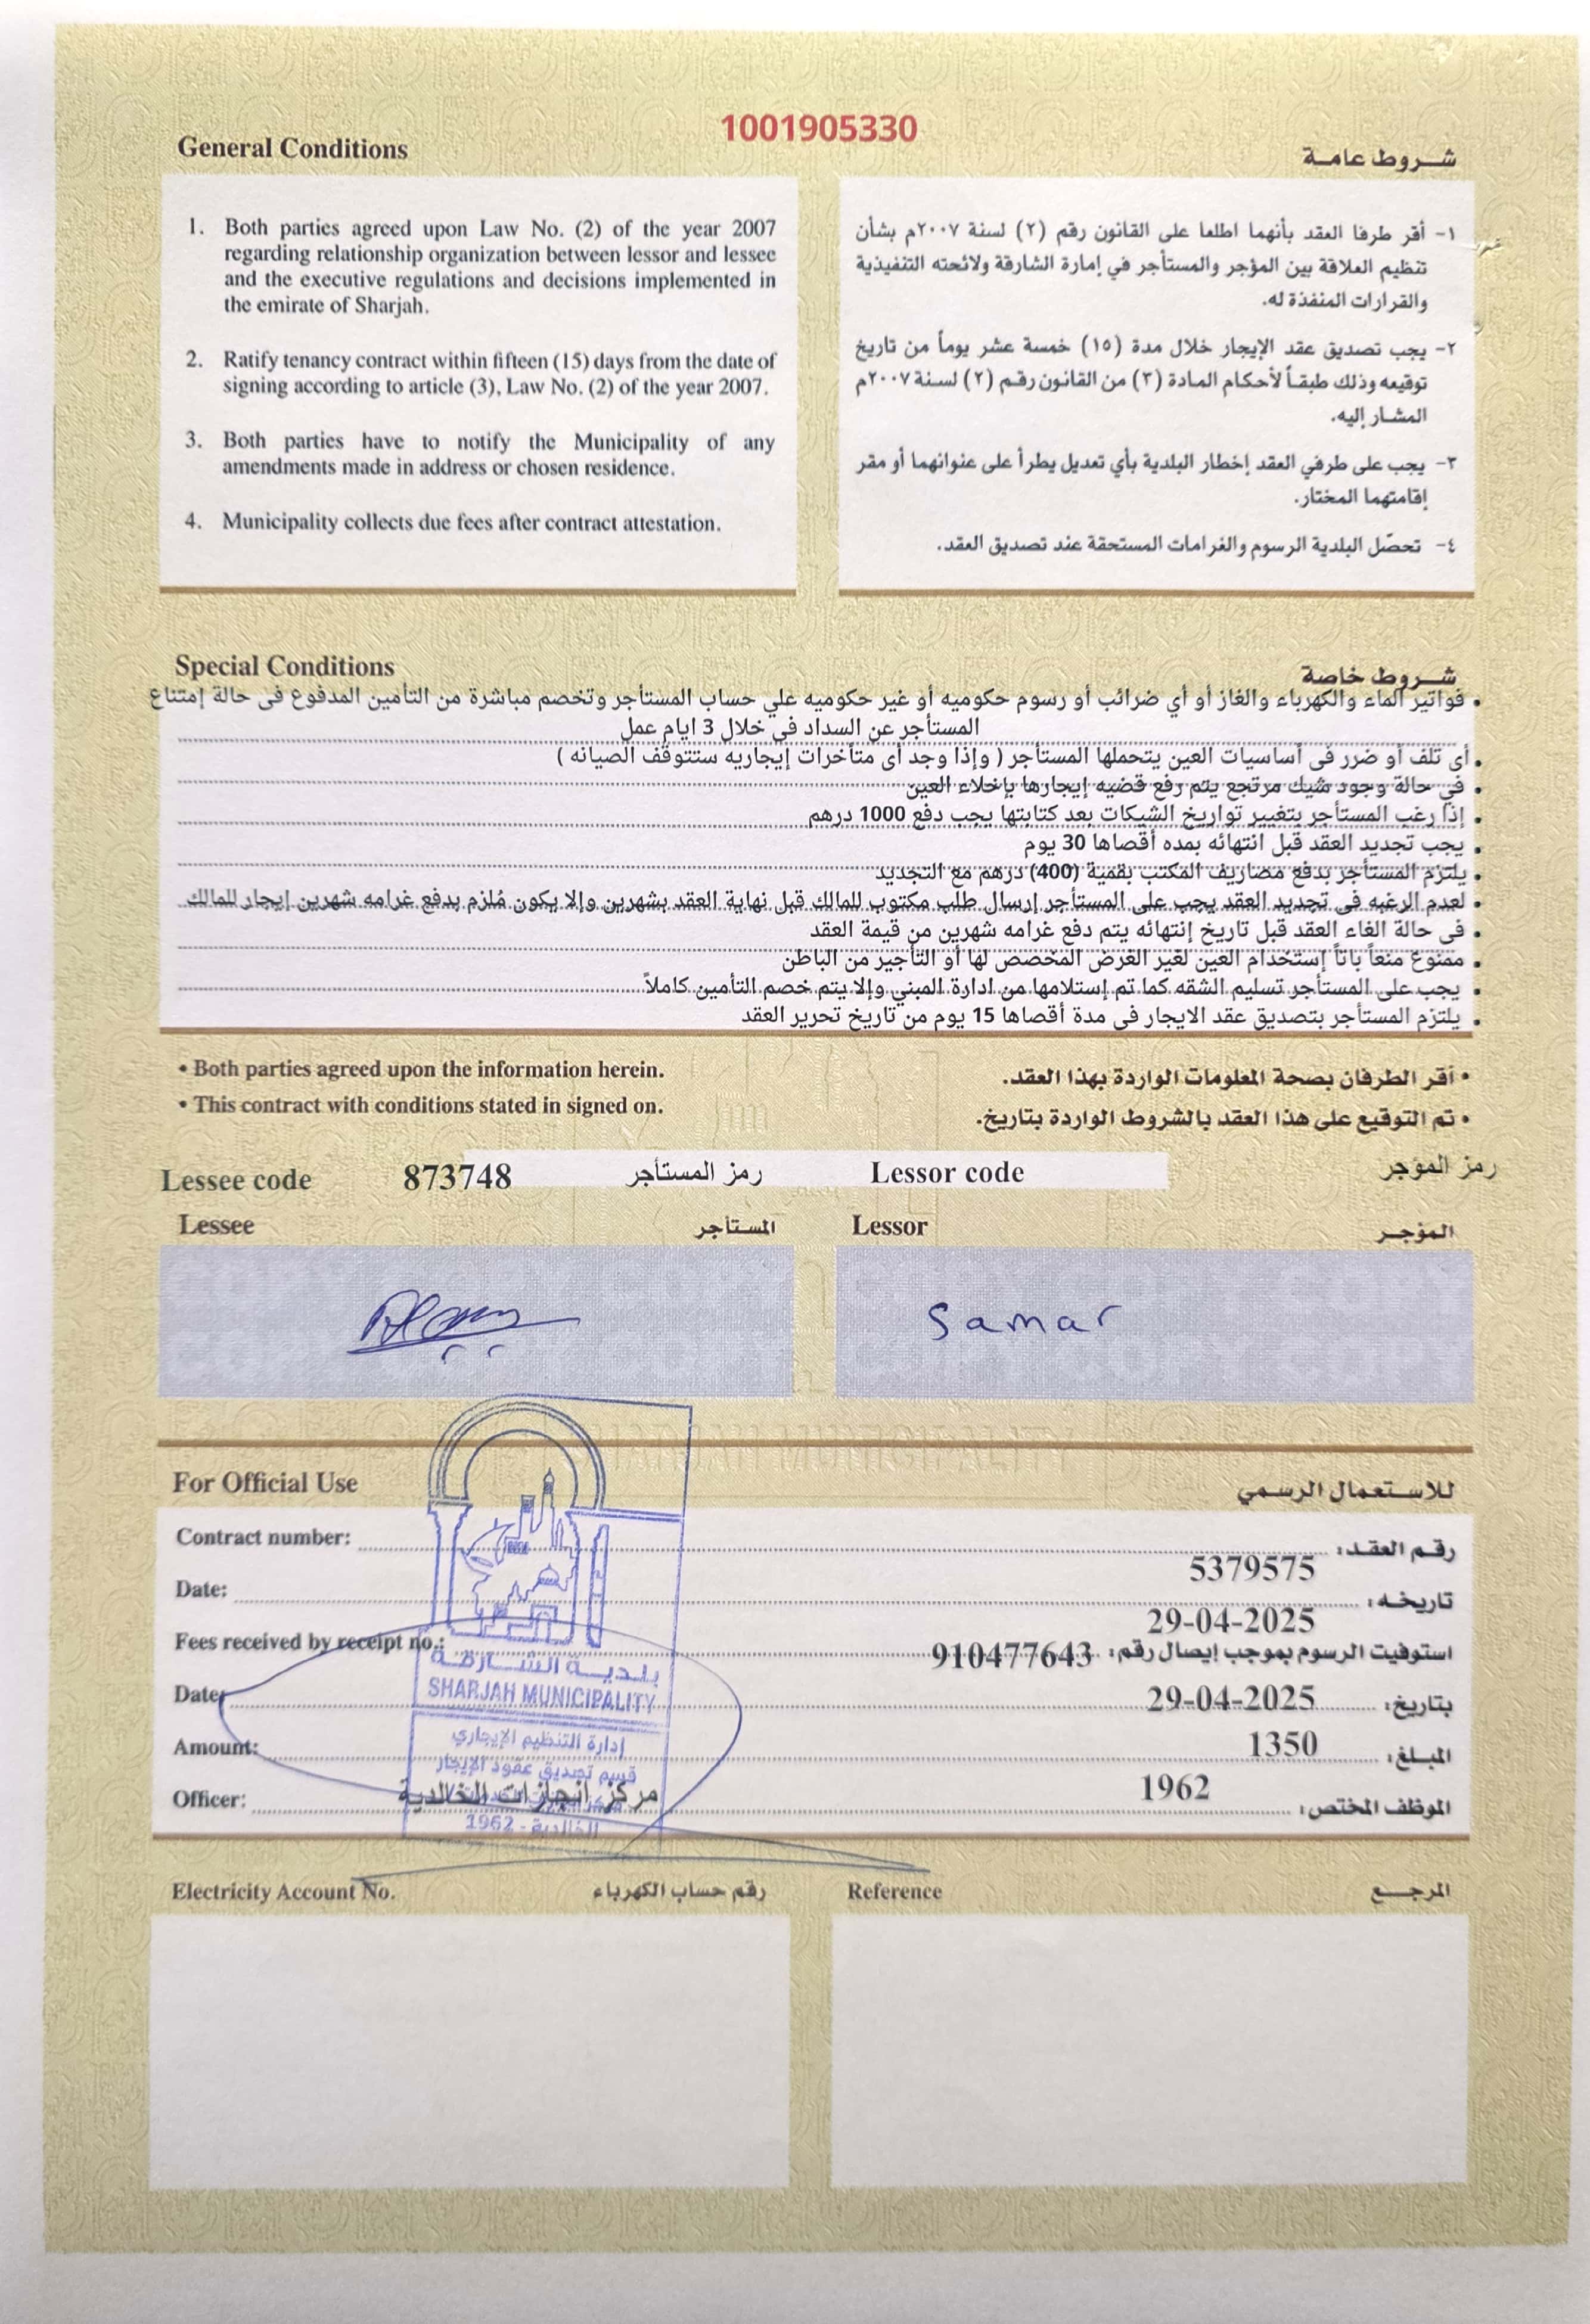 1001905330
General Conditions
شروط عامة
1. Both parties agreed upon Law No. (2) of the year 2007
regarding relationship organization between lessor and lessee
and the executive regulations and decisions implemented in
the emirate of Sharjah.
2. Ratify tenancy contract within fifteen (15) days from the date of
signing according to article (3), Law No. (2) of the year 2007.
3. Both parties have to notify the Municipality of any
amendments made in address or chosen residence.
4. Municipality collects due fees after contract attestation.
١- أقر طرفا العقد بأنهما اطلعا على القانون رقم (٢) لسنة ٢٠٠٧م بشأن
تنظيم العلاقة بين المؤجر والمستأجر في إمارة الشارقة ولائحته التنفيذية
والقرارات المنفذة له.
٢- يجب تصديق عقد الإيجار خلال مدة (١٥) خمسة عشر يوماً من تاريخ
توقيعه وذلك طبقاً لأحكام المادة (٣) من القانون رقم (٢) لسنة ٢٠٠٧م
المشار إليه.
٣- يجب على طرفي العقد إخطار البلدية بأي تعديل يطرأ على عنوانهما أو مقر
إقامتهما المختار.
٤- تحصّل البلدية الرسوم والغرامات المستحقة عند تصديق العقد.
Special Conditions
شروط خاصة
• فواتير الماء والكهرباء والغاز أو أي ضرائب أو رسوم حكوميه أو غير حكوميه علي حساب المستأجر وتخصم مباشرة من التأمين المدفوع فى حالة إمتناع
المستأجر عن السداد في خلال 3 ايام عمل
• أى تلف أو ضرر فى أساسيات العين يتحملها المستأجر ( وإذا وجد أى متأخرات إيجاريه ستتوقف الصيانه )
• في حالة وجود شيك مرتجع يتم رفع قضيه إيجارها بإخلاء العين
• إذا رغب المستأجر بتغيير تواريخ الشيكات بعد كتابتها يجب دفع 1000 درهم
• يجب تجديد العقد قبل انتهائه بمده أقصاها 30 يوم
• يلتزم المستأجر بدفع مصاريف المكتب بقمية (400) درهم مع التجديد
• لعدم الرغبه فى تجديد العقد يجب على المستأجر إرسال طلب مكتوب للمالك قبل نهاية العقد بشهرين وإلا يكون مُلزم بدفع غرامه شهرين إيجار للمالك
• فى حالة الغاء العقد قبل تاريخ إنتهائه يتم دفع غرامه شهرين من قيمة العقد
• ممنوع منعاً باتاً إستخدام العين لغير الغرض المخصص لها أو التأجير من الباطن
• يجب على المستأجر تسليم الشقه كما تم إستلامها من ادارة المبني وإلا يتم خصم التأمين كاملاً
• يلتزم المستأجر بتصديق عقد الايجار فى مدة أقصاها 15 يوم من تاريخ تحرير العقد
• Both parties agreed upon the information herein.
• أقر الطرفان بصحة المعلومات الواردة بهذا العقد.
• This contract with conditions stated in signed on.
• تم التوقيع على هذا العقد بالشروط الواردة بتاريخ.
Lessee code 873748 رمز المستأجر Lessor code رمز المؤجر
Lessee المستأجر Lessor المؤجر
Samar
For Official Use للاستعمال الرسمي
Contract number: رقم العقد:
5379575
Date: تاريخه:
29-04-2025
Fees received by receipt no.: 910477643 استوفيت الرسوم بموجب إيصال رقم:
Date: 29-04-2025 بتاريخ:
Amount: 1350 المبلغ:
Officer: 1962 الموظف المختص:
بلدية الشارقة
SHARJAH MUNICIPALITY
إدارة التنظيم الإيجاري
قسم تصديق عقود الإيجار
مركز انجازات الخالدية
الخالدية - 1962
Electricity Account No. رقم حساب الكهرباء Reference المرجع